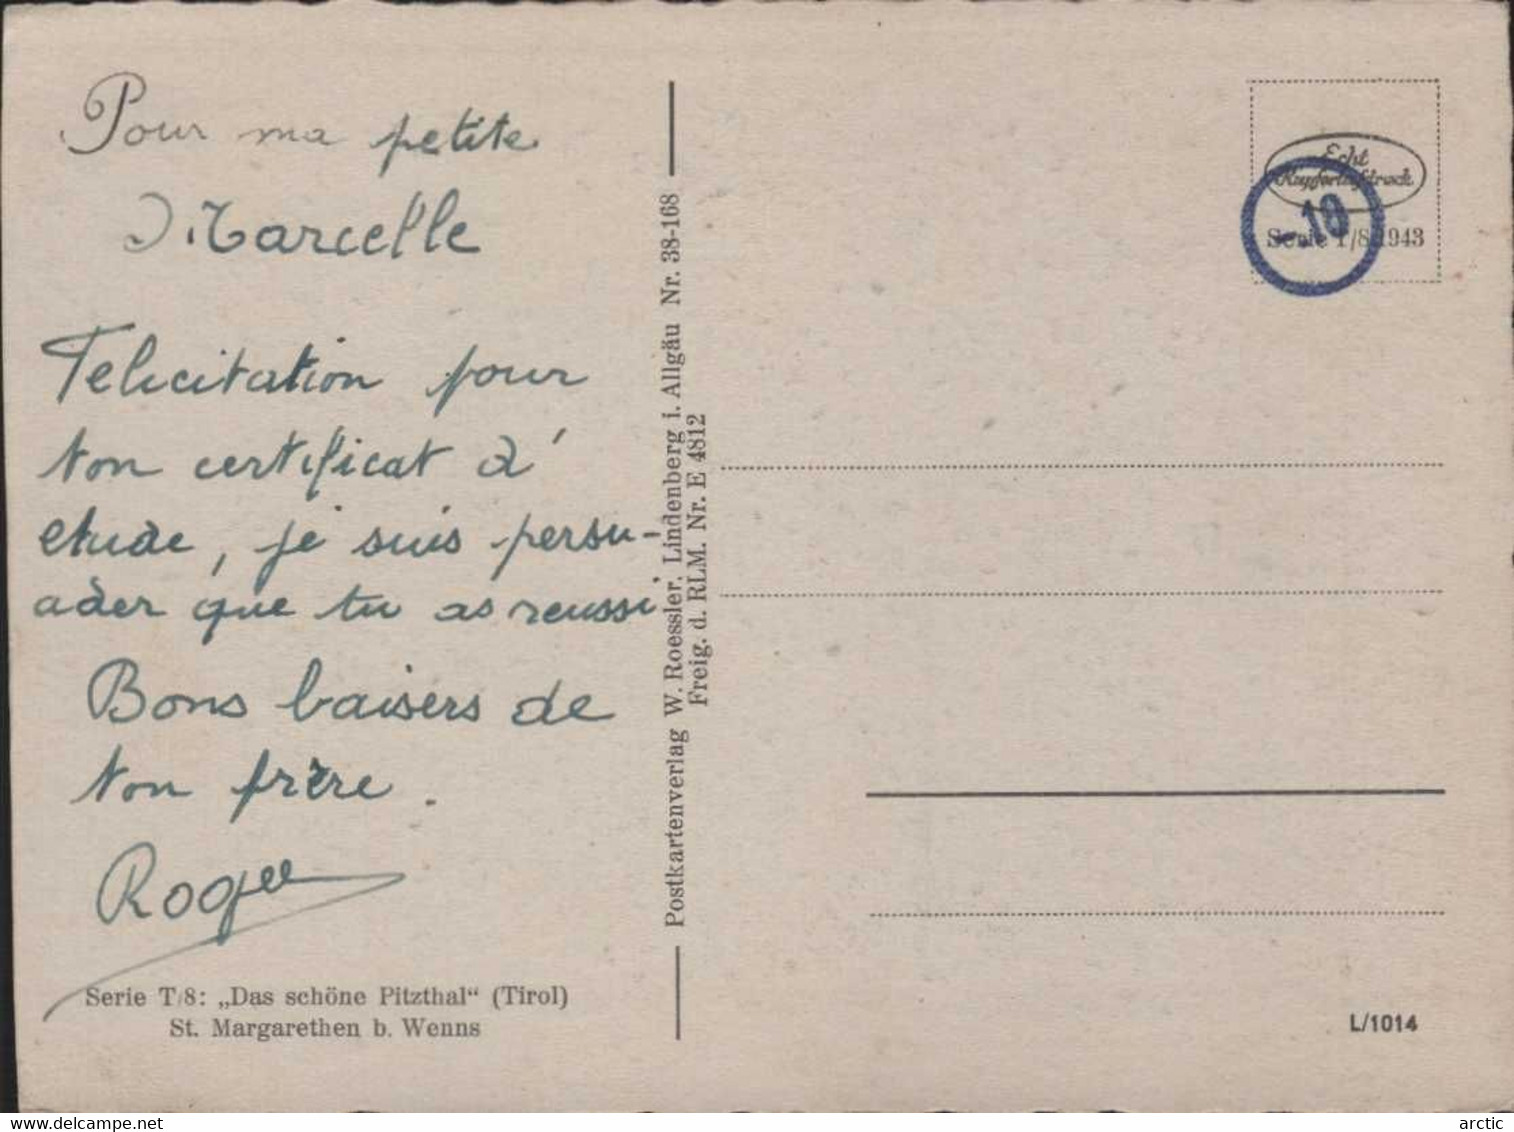 Pour ma petite
Marcelle
Felicitation pour
ton certificat d'
etude, je suis persu-
ader que tu as reussi
Bons baisers de
ton frère.
Roger
Serie T/8: „Das schöne Pitzthal“ (Tirol)
St. Margarethen b. Wenns
Postkartenverlag W. Roessler, Lindenberg i. Allgäu Nr. 38-168
Freig. d. RLM. Nr. E 4812
Echt
Kupfertiefdruck
Serie T/8 1943
-.10
L/1014
Postkarten ansichtskarten auf delcampe.net
arctic